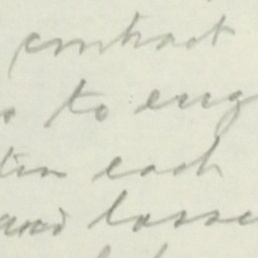 contract
to eng
tin each
and losse